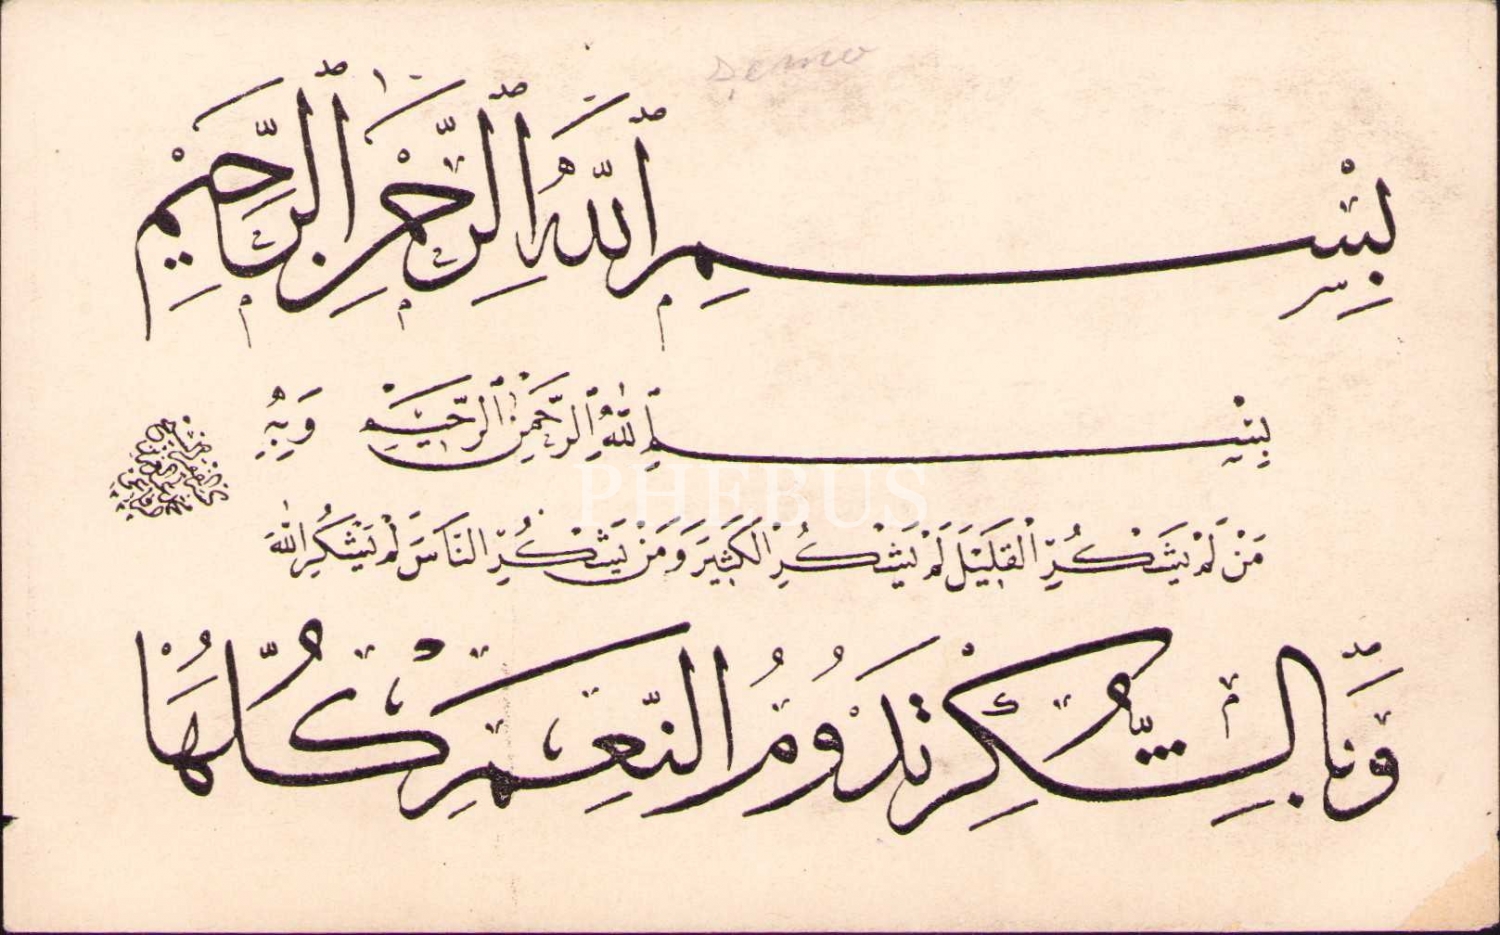 Demo
بِسْمِ ٱللَّهِ ٱلرَّحْمَٰنِ ٱلرَّحِيمِ
بِسْمِ ٱللَّهِ ٱلرَّحْمَٰنِ ٱلرَّحِيمِ وَبِهِ
PHEBUS
مَنْ لَمْ يَشْكُرِ الْقَلِيلَ لَمْ يَشْكُرِ الْكَثِيرَ وَمَنْ لَمْ يَشْكُرِ النَّاسَ لَمْ يَشْكُرِ اللهَ
وَبِالشُّكْرِ تَدُومُ النِّعَمُ كُلُّهَا